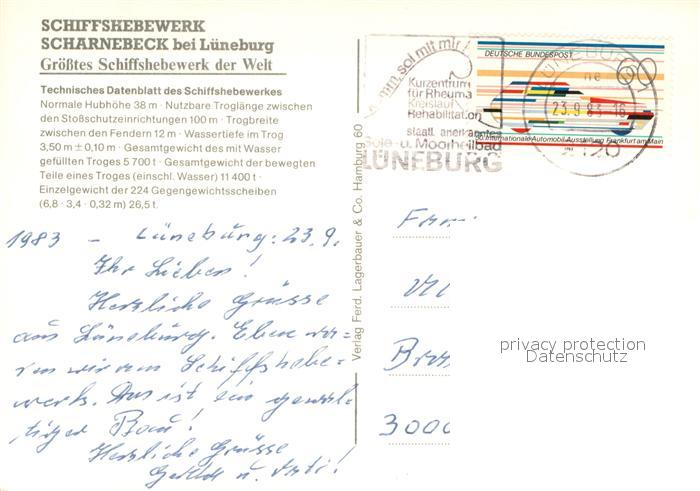 SCHIFFSHEBEWERK
SCHARNEBECK bei Lüneburg
Größtes Schiffshebewerk der Welt
Technisches Datenblatt des Schiffshebewerkes
Normale Hubhöhe 38 m · Nutzbare Troglänge zwischen
den Stoßschutzeinrichtungen 100 m · Trogbreite
zwischen den Fendern 12 m · Wassertiefe im Trog
3,50 m ± 0,10 m · Gesamtgewicht des mit Wasser
gefüllten Troges 5 700 t · Gesamtgewicht der bewegten
Teile eines Troges (einschl. Wasser) 11 400 t ·
Einzelgewicht der 224 Gegengewichtsscheiben
(6,8 · 3,4 · 0,32 m) 26,5 t.
1983 - Lüneburg: 23.9.
Ihr Lieben!
Herzliche Grüsse
aus Lüneburg. Eben wa-
ren wir am Schiffshebe-
werk. Das ist ein gewal-
tiger Bau!
Herzliche Grüsse
u.
Verlag Ferd. Lagerbauer & Co. Hamburg 60
sol mit mir
Kurzentrum
für Rheuma
Kreislauf
Rehabilitation
staatl. anerkanntes
Sole- u. Moorheilbad
LÜNEBURG
DEUTSCHE BUNDESPOST
60
50. Internationale Automobil-Ausstellung Frankfurt am Main
LÜNEBURG
ne
23.9.83-16
2120
3000
privacy protection
Datenschutz